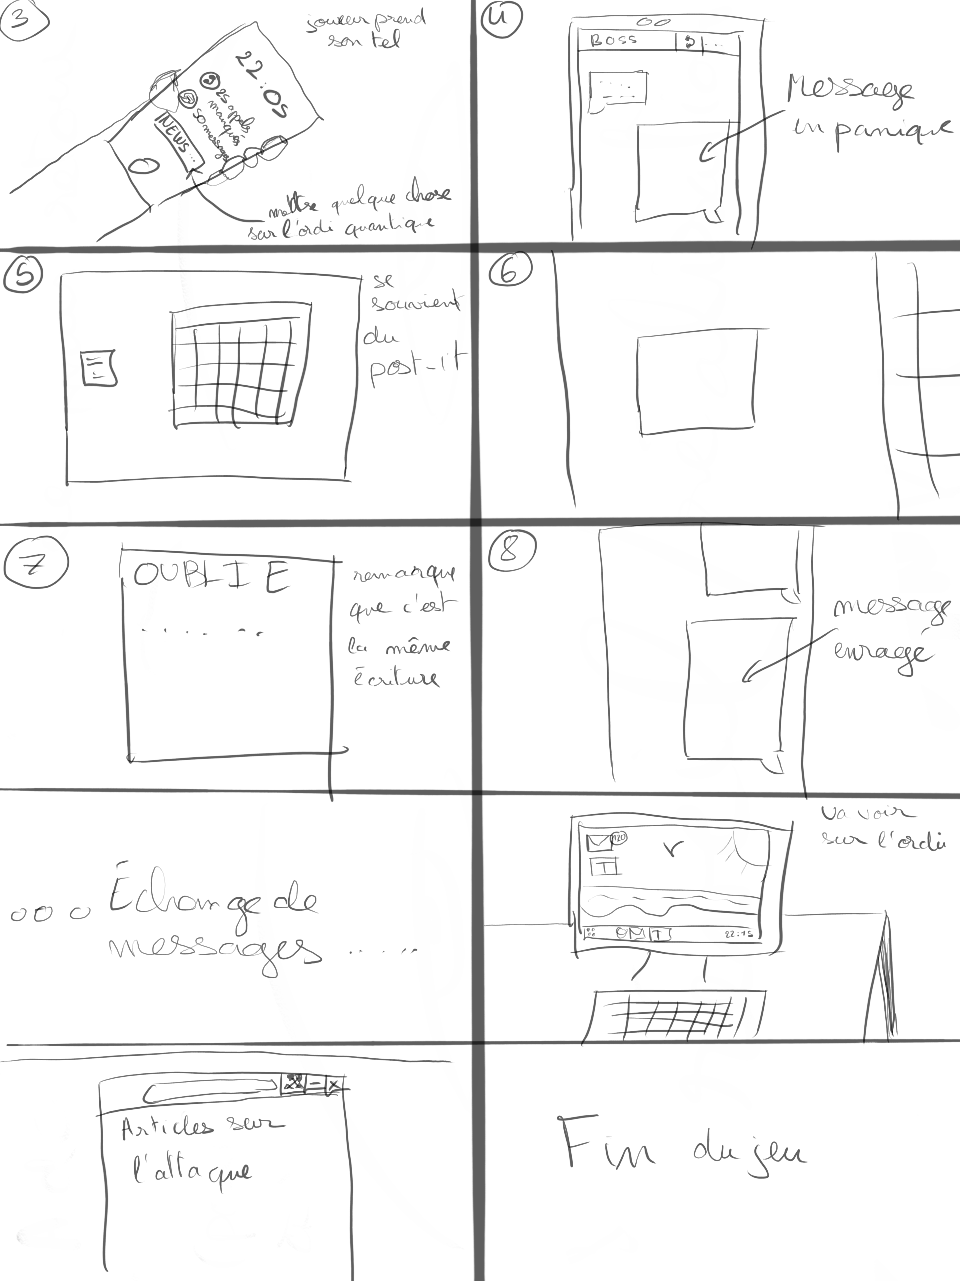 3
joueur prend
son tel
22:05
25 appels
manqués
50 messages
NEWS...
mettre quelque chose
sur l'ordi quantique
4
BOSS
...
Message
en panique
5
se
souvient
du
post-it
6
7
OUBLIE
. . . . . .
remarque
que c'est
la même
écriture
8
message
enragé
ooo Échange de
messages .....
va voir
sur l'ordi
T
T
22:15
Articles sur
l'attaque
Fin du jeu